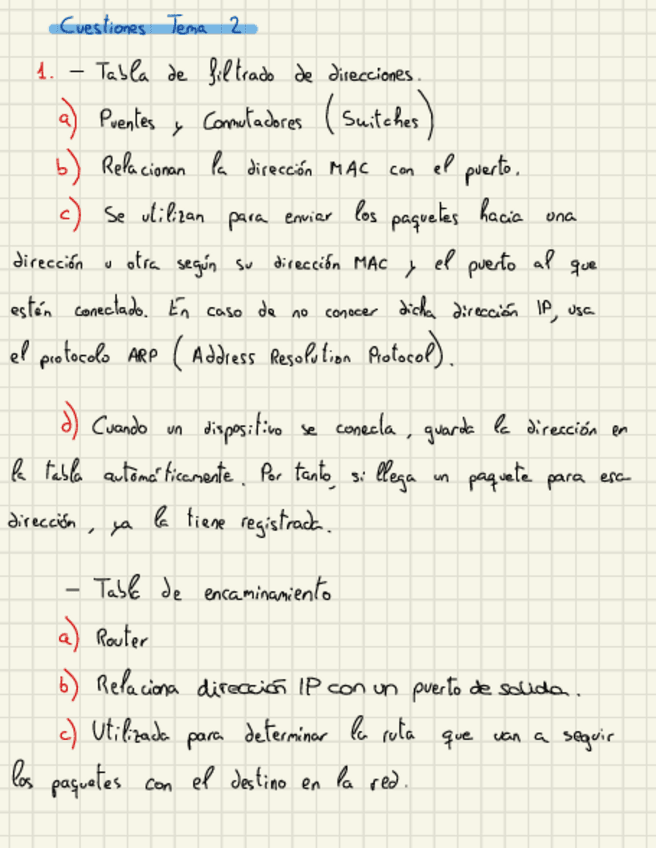 Cuestiones Tema 2
1. - Tabla de filtrado de direcciones.
a) Puentes y Conmutadores (Suitches)
b) Relacionan la dirección MAC con el puerto.
c) Se utilizan para enviar los paquetes hacia una
dirección u otra según su dirección MAC y el puerto al que
estén conectado. En caso de no conocer dicha dirección IP, usa
el protocolo ARP (Address Resolution Protocol).
d) Cuando un dispositivo se conecta, guarda la dirección en
la tabla automáticamente. Por tanto, si llega un paquete para esa
dirección, ya la tiene registrada.
- Tabla de encaminamiento
a) Router
b) Relaciona dirección IP con un puerto de salida.
c) Utilizada para determinar la ruta que van a seguir
los paquetes con el destino en la red.